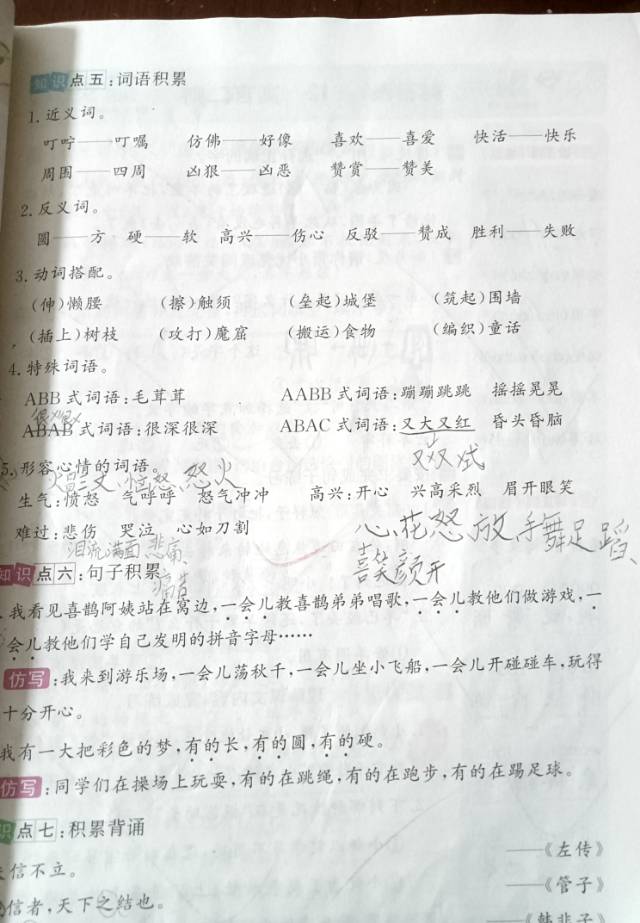 知识点五:词语积累
1.近义词。
叮咛——叮嘱 仿佛——好像 喜欢——喜爱 快活——快乐
周围——四周 凶狠——凶恶 赞赏——赞美
2.反义词。
圆——方 硬——软 高兴——伤心 反驳——赞成 胜利——失败
3.动词搭配。
(伸)懒腰 (擦)触须 (垒起)城堡 (筑起)围墙
(插上)树枝 (攻打)魔窟 (搬运)食物 (编织)童话
4.特殊词语。
ABB式词语:毛茸茸 AABB式词语:蹦蹦跳跳 摇摇晃晃
ABAB式词语:很深很深 ABAC式词语:又大又红 昏头昏脑
又X又X式
5.形容心情的词语。
愤怒、怒火
生气:愤怒 气呼呼 怒气冲冲 高兴:开心 兴高采烈 眉开眼笑
难过:悲伤 哭泣 心如刀割
心花怒放,手舞足蹈
泪流满面、悲痛、
喜笑颜开
痛苦
知识点六:句子积累
我看见喜鹊阿姨站在窝边,一会儿教喜鹊弟弟唱歌,一会儿教他们做游戏,一
会儿教他们学自己发明的拼音字母……
仿写:我来到游乐场,一会儿荡秋千,一会儿坐小飞船,一会儿开碰碰车,玩得
十分开心。
我有一大把彩色的梦,有的长,有的圆,有的硬。
仿写:同学们在操场上玩耍,有的在跳绳,有的在跑步,有的在踢足球。
识点七:积累背诵
信不立。 ——《左传》
信者,天下之结也。 ——《管子》
——《韩非子》